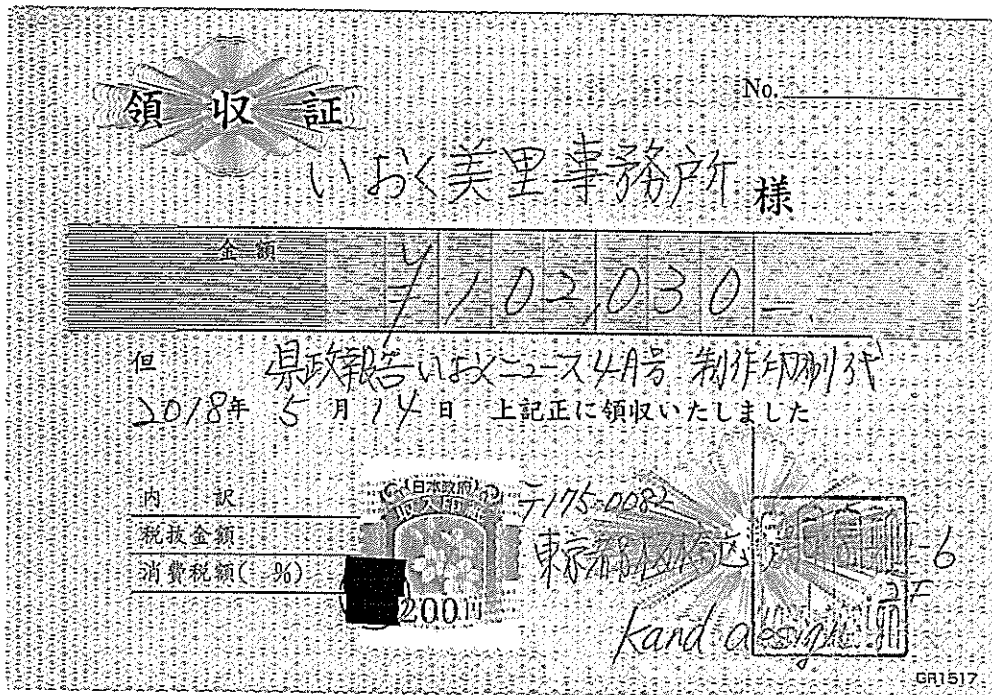 領収証
No.
いおく美里事務所 様
金額
¥102,030-
但 県政報告いおくニュース4月号 制作印刷代
2018年 5月14日 上記正に領収いたしました
内訳
税抜金額
消費税額( %)
日本政府
収入印紙
200円
〒175-0082
東京都板橋区
-6
2F
kand design
GR1517